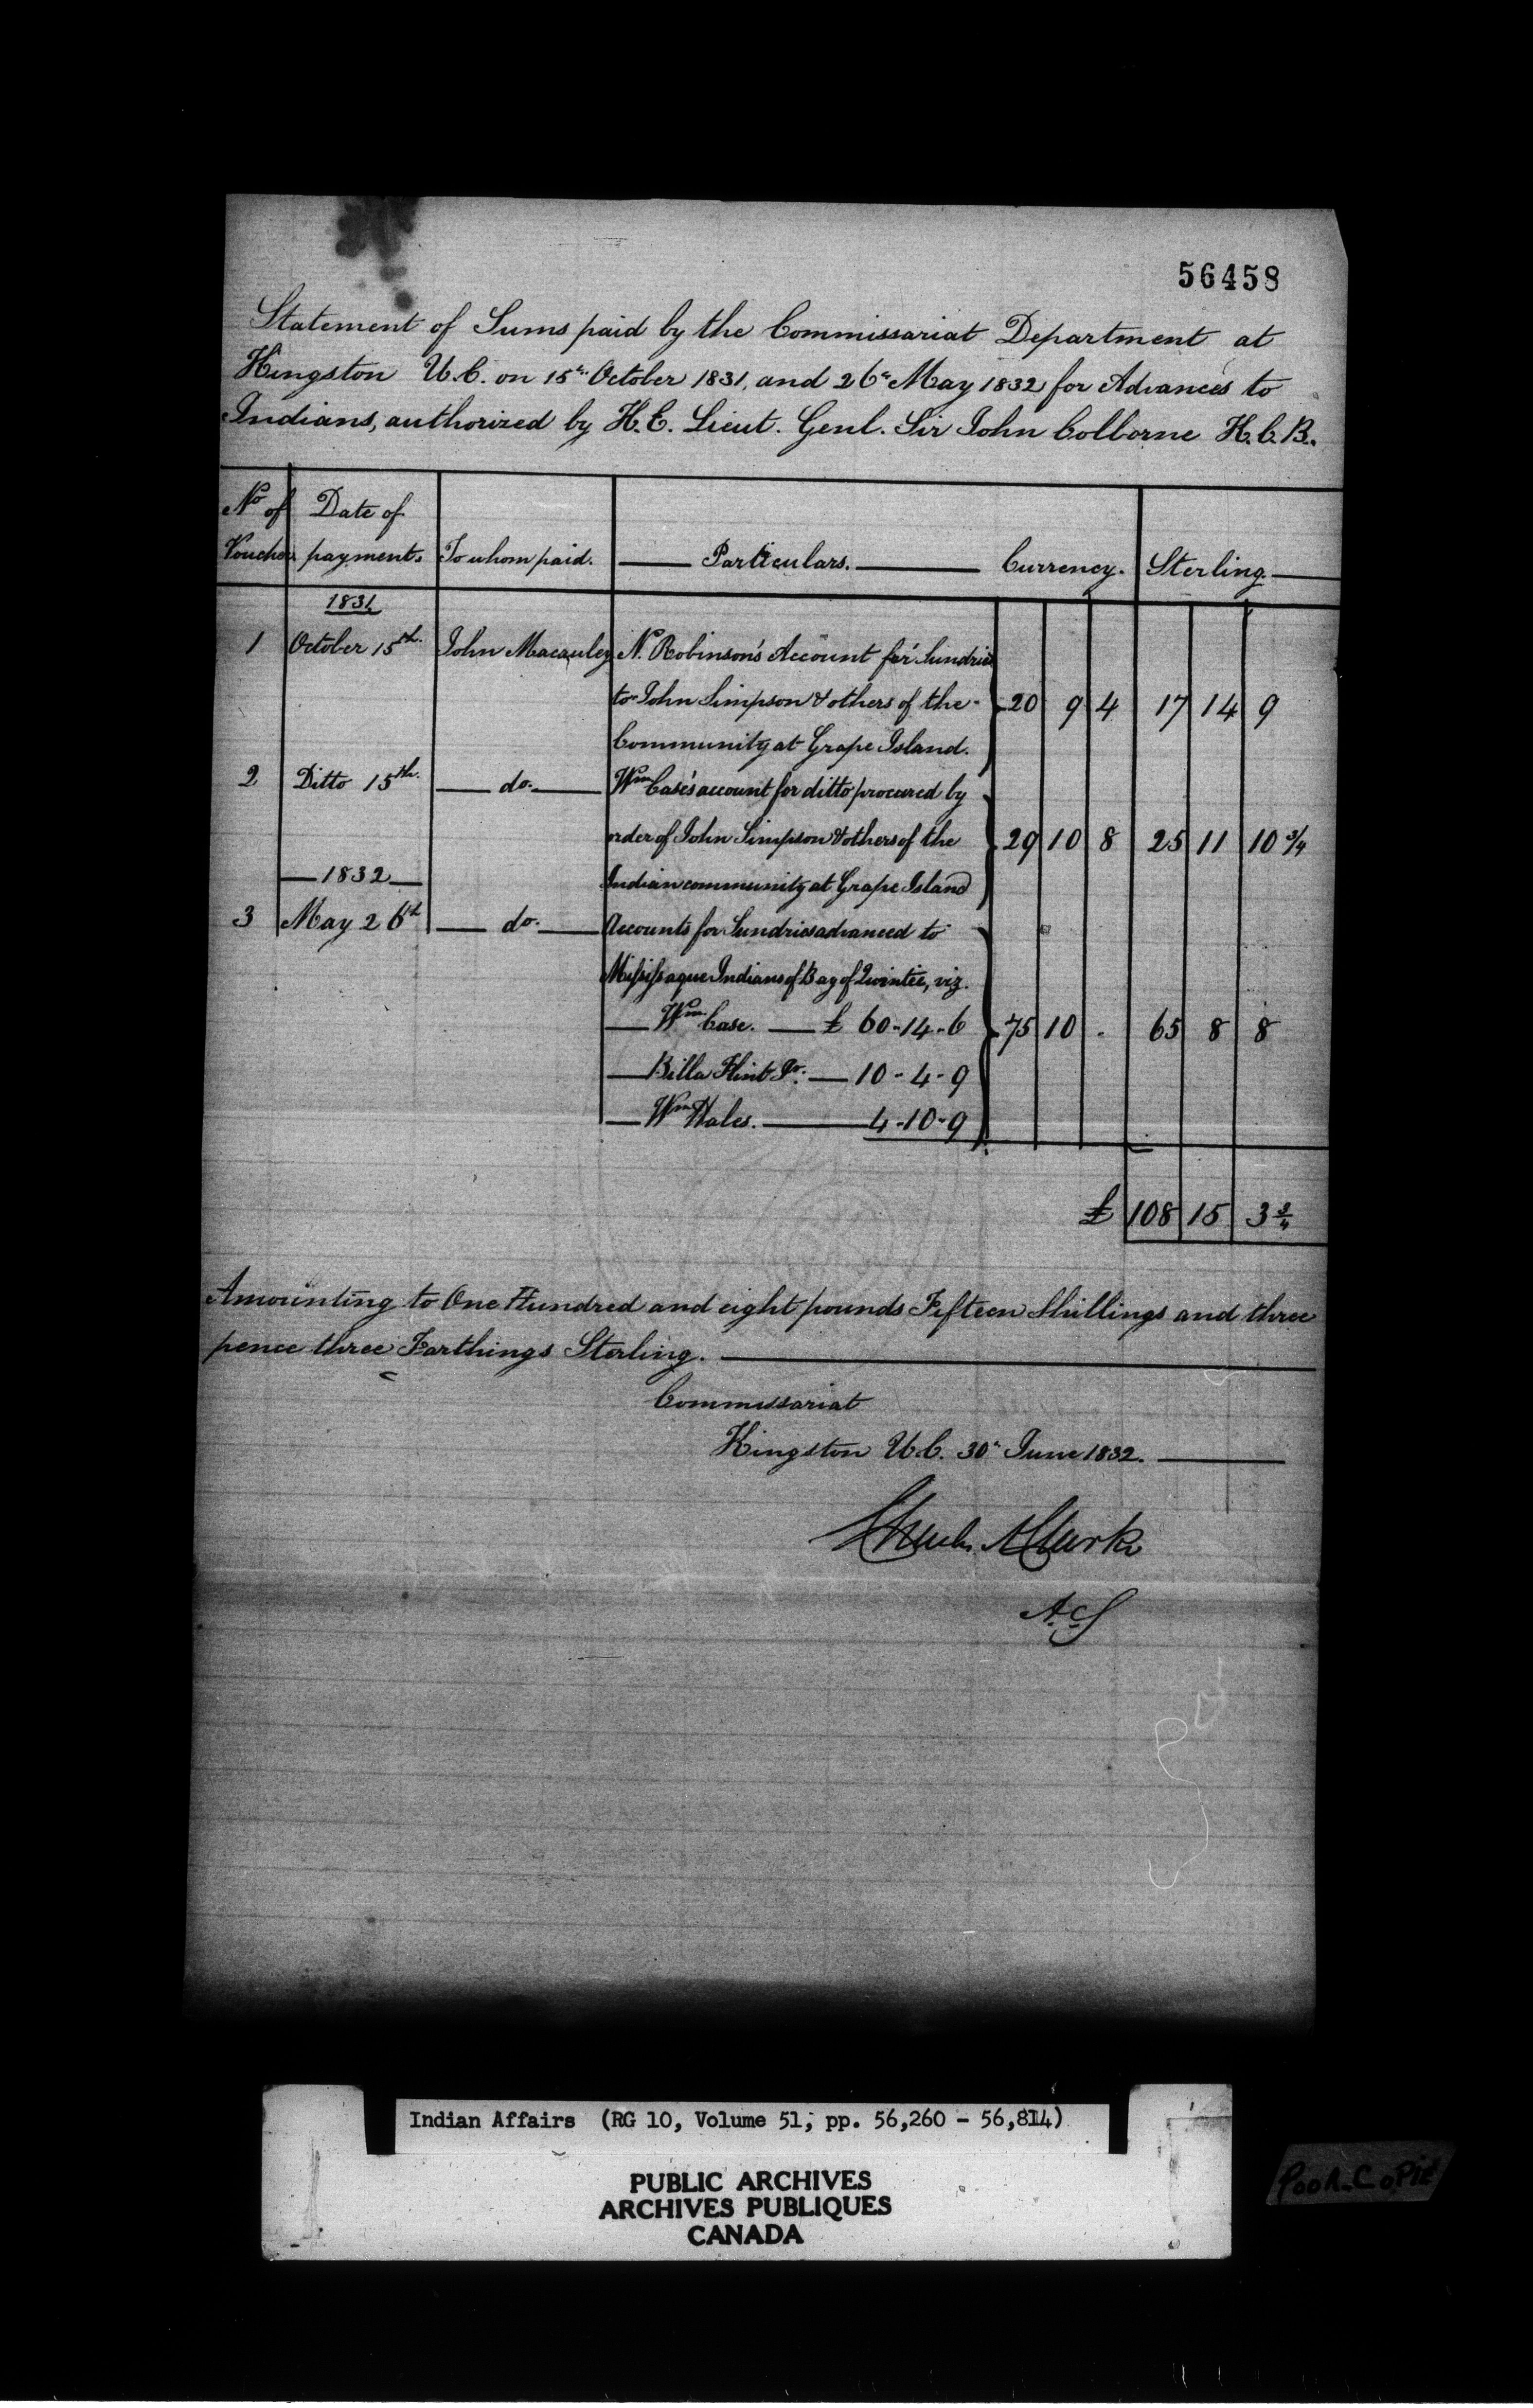 56458
Statement of Sums paid by the Commissariat Department at
Kingston U.C. on 15th October 1831, and 26th May 1832 for Advances to
Indians, authorized by H.E. Lieut. Genl. Sir John Colborne K.C.B.
No of Date of
Voucher payment. To whom paid. Particulars. Currency. Sterling.
1831
1 October 15th. John Macauley N. Robinson's Account for Sundries
to John Simpson & others of the 20 9 4 17 14 9
Community at Grape Island.
2 Ditto 15th. do. Wm Case's account for ditto procured by
order of John Simpson & others of the 29 10 8 25 11 10 3/4
1832 Indian community at Grape Island
3 May 26th do. Accounts for Sundries advanced to
Missisaque Indians of Bay of Quintie, viz.
Wm Case. £ 60-14-6 75 10 - 65 8 8
Billa Flint Jr. 10-4-9
Wm Hales. 4-10-9
£ 108 15 3 3/4
Amounting to One Hundred and eight pounds Fifteen Shillings and three
pence three Farthings Sterling.
Commissariat
Kingston U.C. 30th June 1832.
Clarke
A.C.G
Indian Affairs (RG 10, Volume 51, pp. 56,260 - 56,814)
PUBLIC ARCHIVES
ARCHIVES PUBLIQUES
CANADA
POOR COPIE